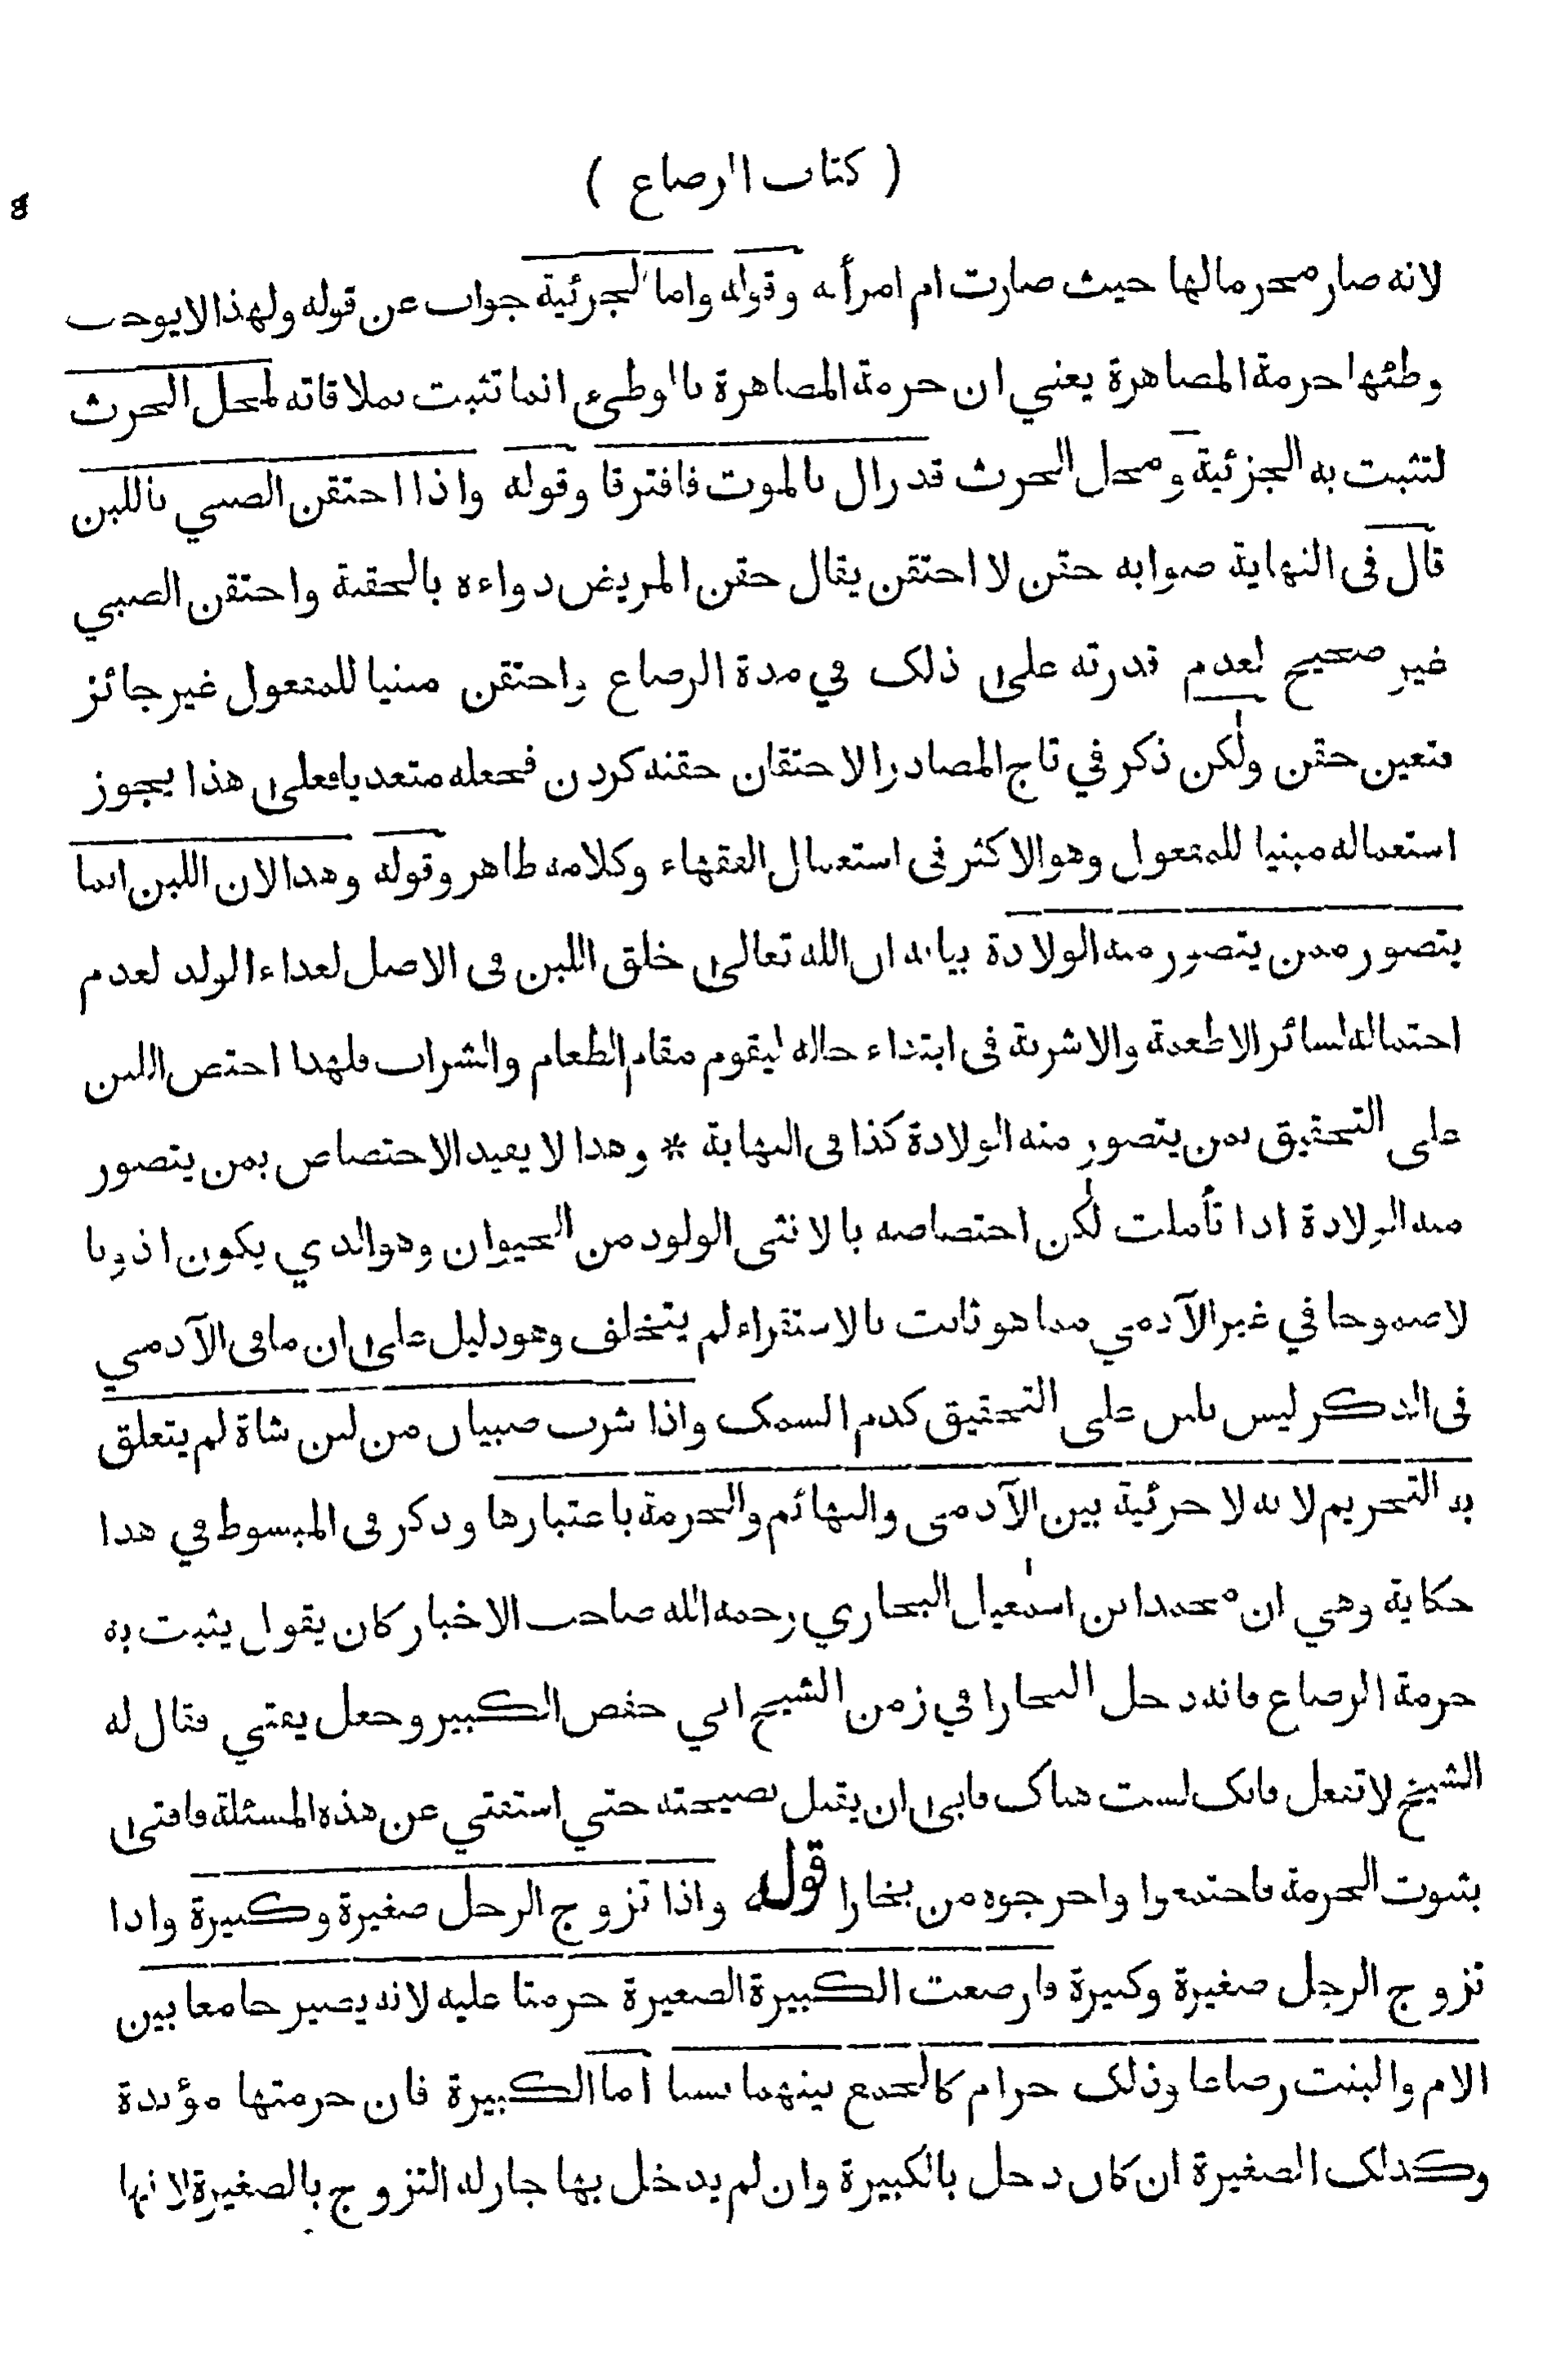 ( كتاب الرضاع )
لانه صار محرمالها حيث صارت ام امرأته وقوله واما الجزئية جواب عن قوله ولهذا لا يوجب
وطئها حرمة المصاهرة يعني ان حرمة المصاهرة بالوطىء انما تثبت بملاقاته لمحل الحرث
لتثبت به الجزئية ومحل الحرث قد زال بالموت فافترقا وقوله واذا احتقن الصبي باللبن
قال فى النهاية صوابه حقن لا احتقن يقال حقن المريض دواءه بالحقنة واحتقن الصبي
غير صحيح لعدم قدرته على ذلك في مدة الرضاع واحتقن مبنيا للمفعول غير جائز
فتعين حقن ولكن ذكر في تاج المصادر الاحتقان حقنه كردن فجعله متعديا فعلى هذا يجوز
استعماله مبنيا للمفعول وهو الاكثر فى استعمال الفقهاء وكلامه ظاهر وقوله وهذا لان اللبن انما
يتصور ممن يتصور منه الولادة بيانه ان الله تعالى خلق اللبن فى الاصل لغذاء الولد لعدم
احتماله لسائر الاطعمة والاشربة فى ابتداء حاله ليقوم مقام الطعام والشراب فلهذا اختص اللبن
على التحقيق بمن يتصور منه الولادة كذا فى النهاية * وهذا لا يفيد الاختصاص بمن يتصور
منه الولادة اذا تأملت لكن اختصاصه بالانثى الولود من الحيوان وهو الذي يكون اذونا
لا صموخا في غير الآدمي مما هو ثابت بالاستقراء لم يتخلف وهو دليل على ان ما فى الآدمي
فى الذكر ليس بلبن على التحقيق كدم السمك واذا شرب صبيان من لبن شاة لم يتعلق
به التحريم لانه لا جزئية بين الآدمى والبهائم والحرمة باعتبارها وذكر فى المبسوط في هذا
حكاية وهي ان محمد ابن اسمعيل البخاري رحمه الله صاحب الاخبار كان يقول يثبت به
حرمة الرضاع فانه دخل البخارا في زمن الشيخ ابي حفص الكبير وجعل يفتي فقال له
الشيخ لا تفعل فانك لست هناك فابى ان يقبل نصيحته حتي استفتي عن هذه المسئلة فافتى
بثبوت الحرمة فاجتمعوا واخرجوه من بخارا قوله واذا تزوج الرجل صغيرة وكبيرة واذا
تزوج الرجل صغيرة وكبيرة فارضعت الكبيرة الصغيرة حرمتا عليه لانه يصير جامعا بين
الام والبنت رضاعا وذلك حرام كالجمع بينهما نسبا اما الكبيرة فان حرمتها مؤبدة
وكذلك الصغيرة ان كان دخل بالكبيرة وان لم يدخل بها جاز له التزوج بالصغيرة لانها